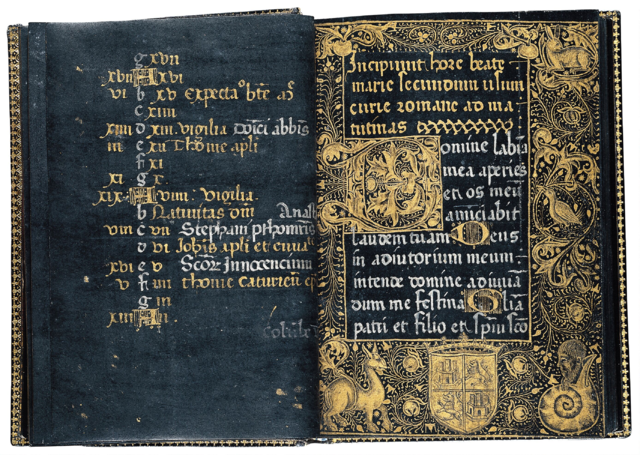 g xvii
xvii A xvi
vi b xv Expectaᵒ bt̄e mᵉ
c xiiii
xiiii d xiii. Vigilia Dominici abb̄is
iii e xii Thome ap̄li
f xi
xi g x
xix A viiii: Vigilia.
b Natiuitas dn̄i
viii c vii Stephani
d vi Joh̄is ap̄li et
xvi e v Sc̄oꝝ Innocencium
v f iiii thome
g iii
xiii A ii.
Incipiunt hore beate
marie secundum usum
curie romane ad ma
tutinas
Domine labia
mea aperies
et os meū
anuciabit
laudem tuam Deus
in adiutorium meum
intende domine adiuuā
dum me festina Glia
patri et filio et spūi sco